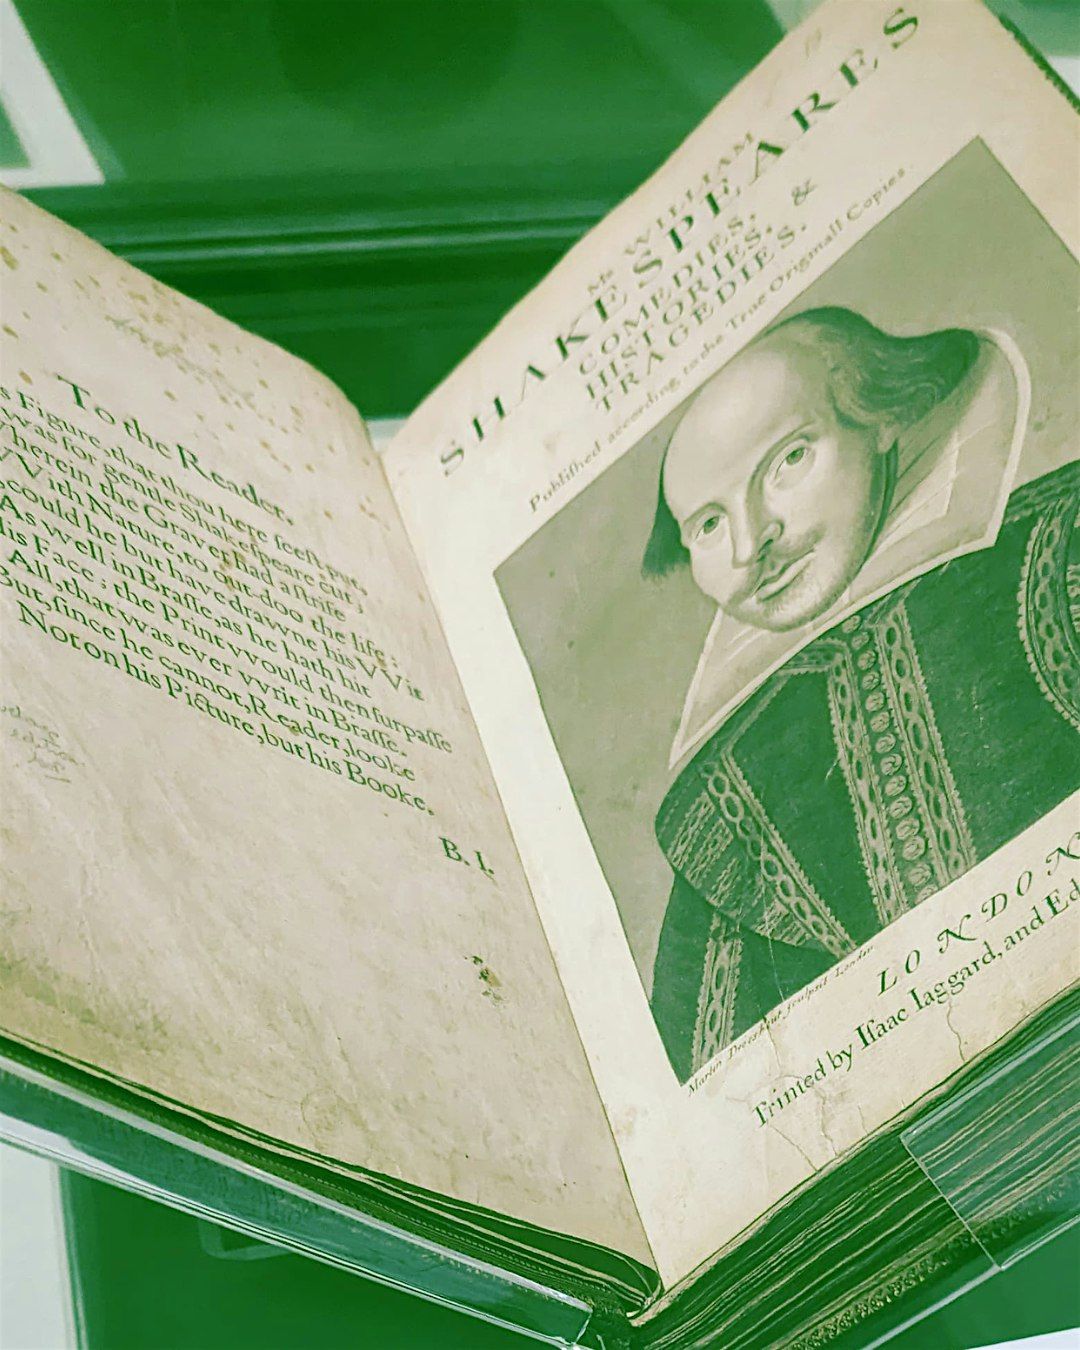 To the Reader.
s Figure, that thou here seest put,
was for gentle Shakespeare cut;
herein the Graver had a strife
VVith Nature, to out-doo the life:
could he but have drawne his VVit
As well in Brasse, as he hath hit
His Face; the Print vvould then surpasse
All, that was ever vvrit in Brasse.
But, since he cannot, Reader, looke
Not on his Picture, but his Booke.
B. I.
Mr WILLIAM
SHAKESPEARES
COMEDIES,
HISTORIES, &
TRAGEDIES.
Published according to the True Originall Copies.
Martin Droeshout sculpsit London
LONDON
Printed by Isaac Iaggard, and Ed